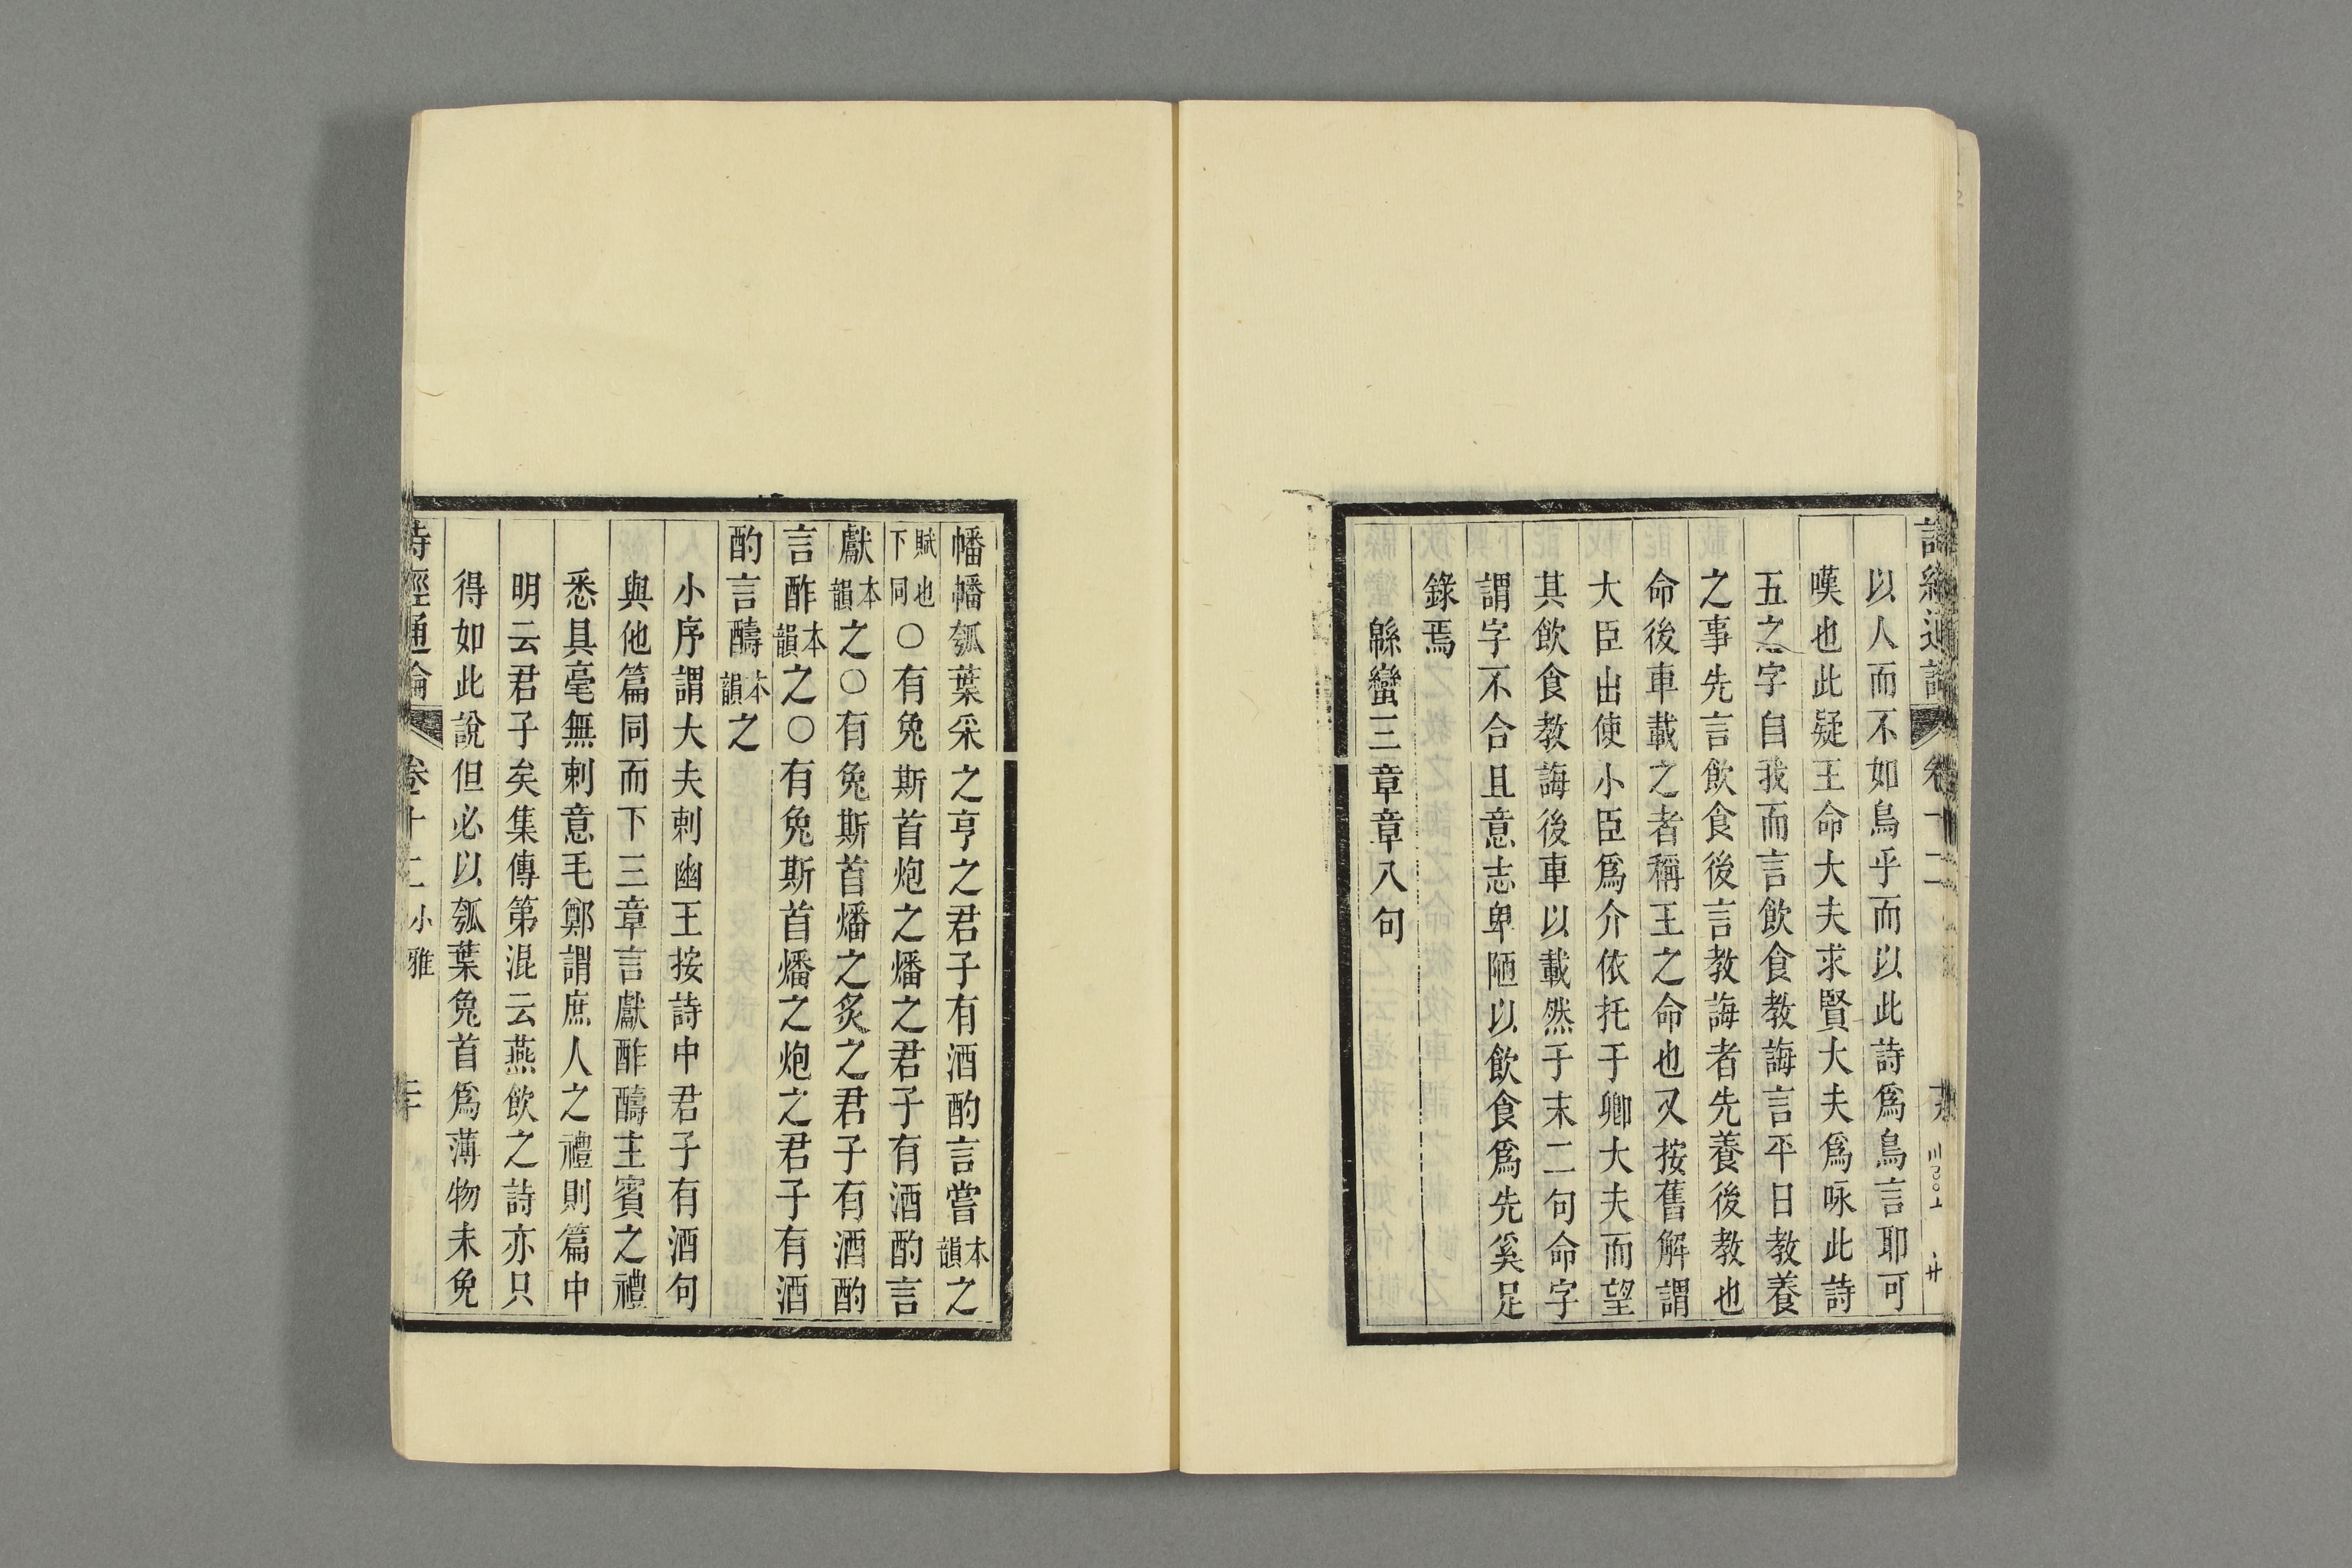 以人而不如鳥乎而以此詩爲鳥言耶可
嘆也此疑王命大夫求賢大夫爲咏此詩
五之字自我而言飲食教誨言平日教養
之事先言飲食後言教誨者先養後教也
命後車載之者稱王之命也又按舊解謂
大臣出使小臣爲介依托于卿大夫而望
其飲食教誨後車以載然于末二句命字
謂字不合且意志卑陋以飲食爲先奚足
錄焉
緜蠻三章章八句
幡幡瓠葉采之亨之君子有酒酌言嘗本韻之
賦也下同○有兔斯首炮之燔之君子有酒酌言
獻本韻之○有兔斯首燔之炙之君子有酒酌
言酢本韻之○有兔斯首燔之炮之君子有酒
酌言醻本韻之
小序謂大夫刺幽王按詩中君子有酒句
與他篇同而下三章言獻酢醻主賓之禮
悉具毫無刺意毛鄭謂庶人之禮則篇中
明云君子矣集傳第混云燕飲之詩亦只
得如此說但必以瓠葉兔首爲薄物未免
詩經通論 卷十二 小雅